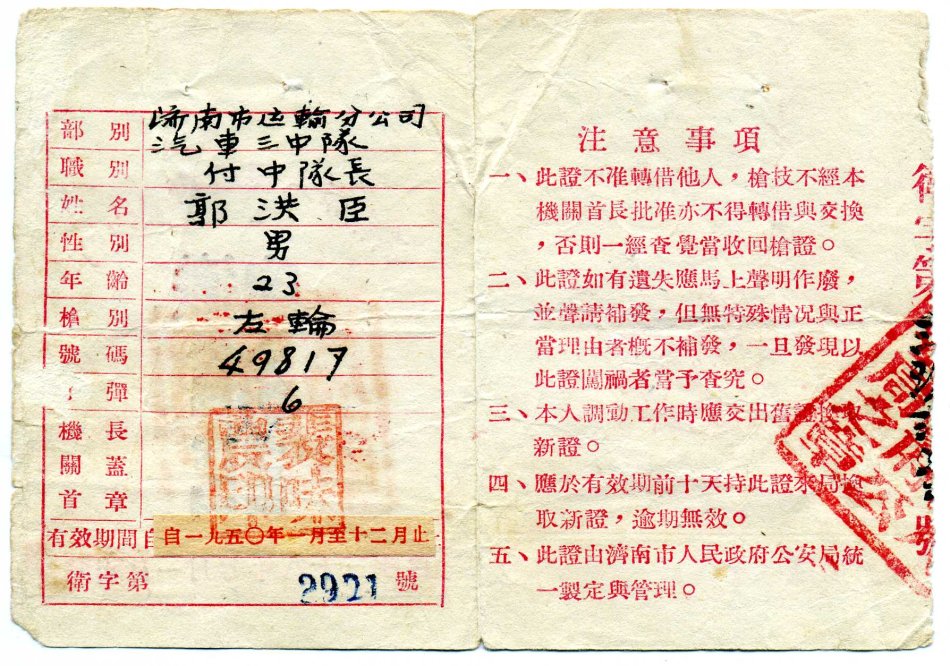 部別 济南市运輸分公司
汽車三中隊
職別 付中隊長
姓名 郭洪臣
性別 男
年齡 23
槍別 左輪
號碼 49817
彈 6
機長
關蓋
首章
有效期間自 自一九五〇年一月至十二月止
衛字第 2921 號
注意事項
一、此證不准轉借他人，槍枝不經本
機關首長批准亦不得轉借與交換
，否則一經查覺當收回槍證。
二、此證如有遺失應馬上聲明作廢，
並聲請補發，但無特殊情况與正
當理由者概不補發，一旦發現以
此證闖禍者當予查究。
三、本人調動工作時應交出舊證換取
新證。
四、應於有效期前十天持此證來局換
取新證，逾期無效。
五、此證由濟南市人民政府公安局統
一製定與管理。
號